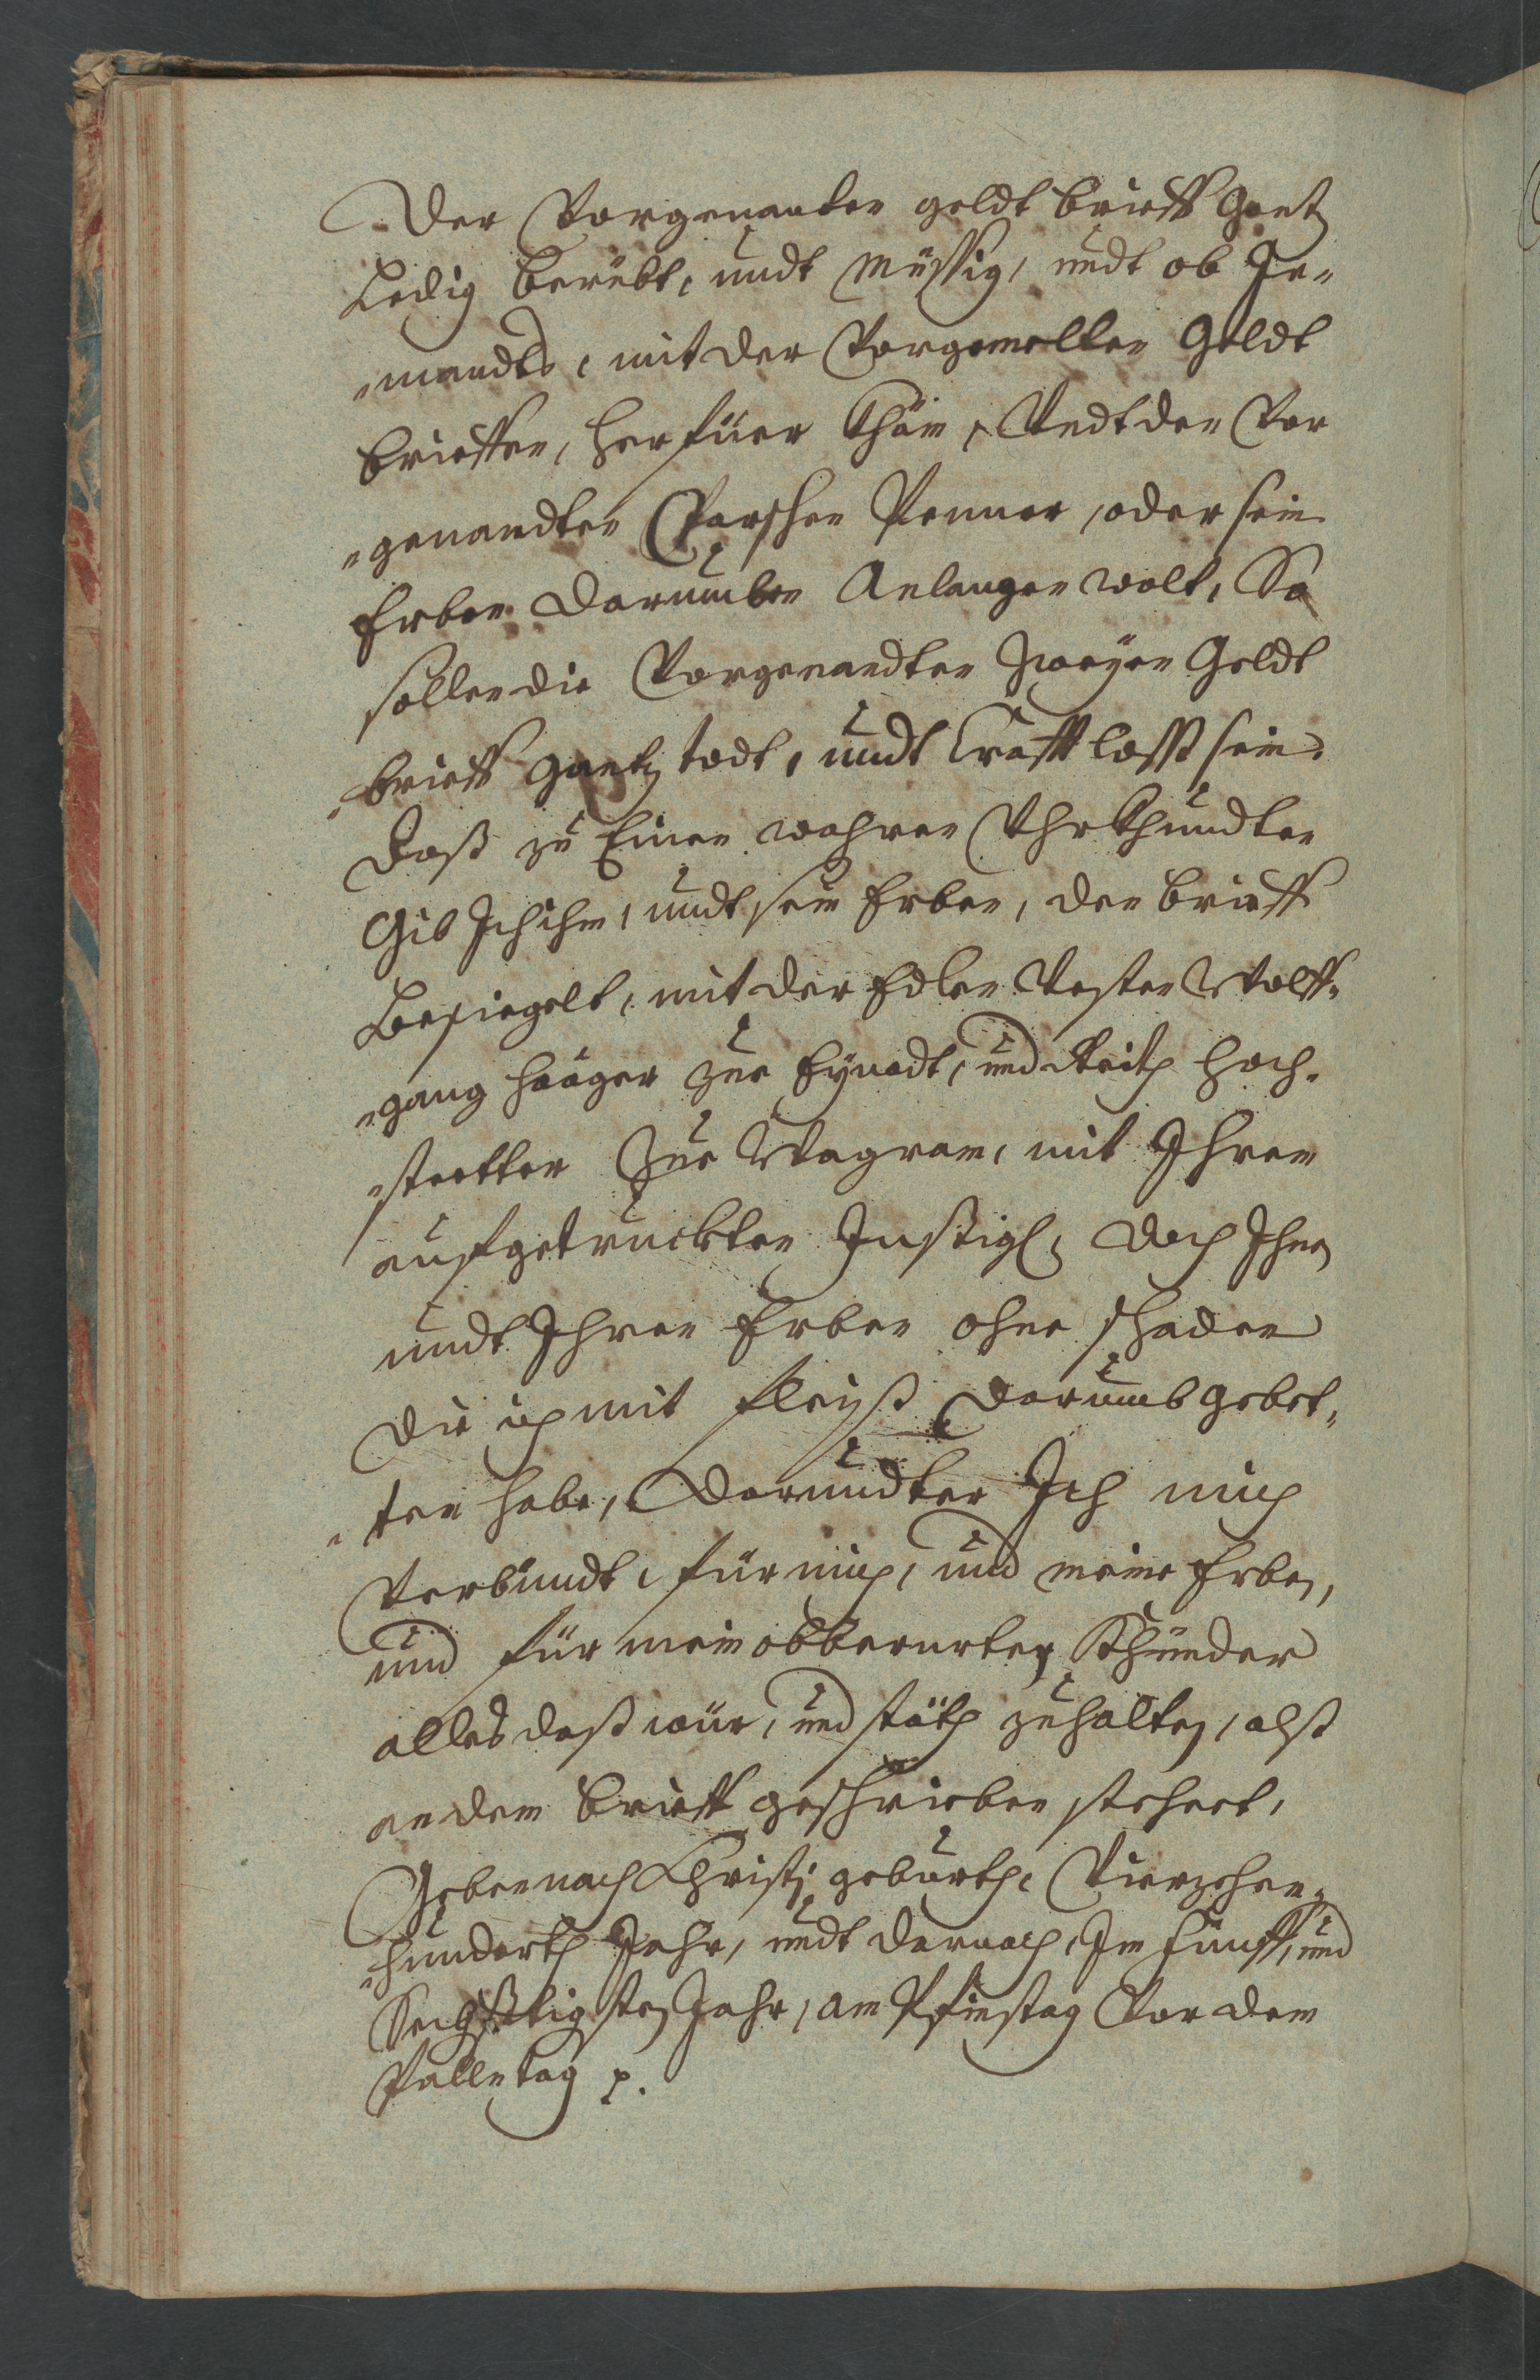 Der Vorgenanten geldt brieff Gantz
Ledig berübt, undt müssig, undt ob Je„
„mandts, mit der Vorgemelten Geldt
brieffen, herfüer Khäm, Undt den Vor
„genandten Parschen Penner, oder sein
Erben darumben Anlangen wolt, So
sollen die Vorgenandten zweyen Geldt
„brieff gantz todt, undt Crafft losß sein.
Daß zu Einen wahren Uhrkhundten
Gib Ich ihm, undt sein Erben, den brieff
Besiegelt, mit der Edlen Vesten Wolff„
„gang Haager zue Eynödt, und Veith Hoch„
„stetter Zue Wagram, mit Ihrem
aufgetruckten Insßigl, doch Ihnen
undt Ihren Erben ohne schaden
die ich mit fleiß darumb gebet„
„ten habe, Darundter Ich mich
Verbündt, für mich, und meine Erben,
und für mein obberurten Khünder
alles daß wür, und stäth zuhalten, alß
an dem brieff geschrieben stehet,
Geben nach Christi geburth, Vierzehen„
„hunderth Jahr, undt darnach, Im Funff, und
Sechßtigsten Jahr, am Pfinstag Vor dem
Palln tag p.